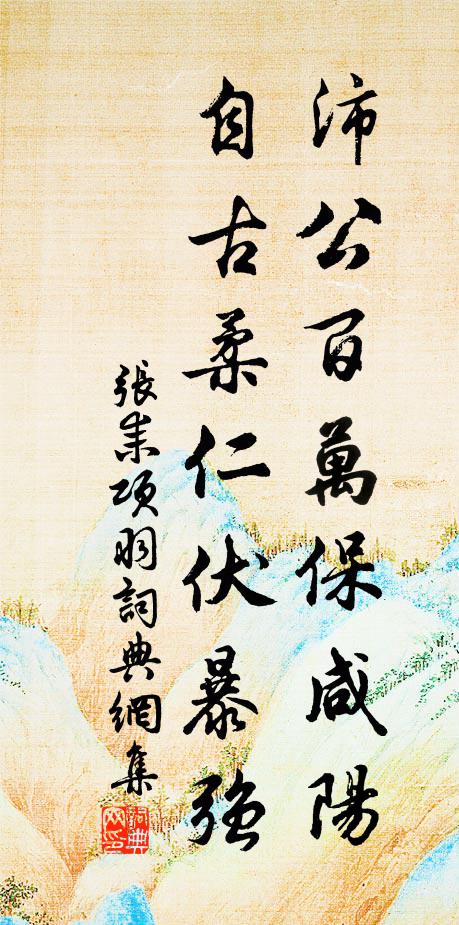 沛公百萬保咸陽
自古柔仁伏暴強
張耒項羽詞典網集
詞典